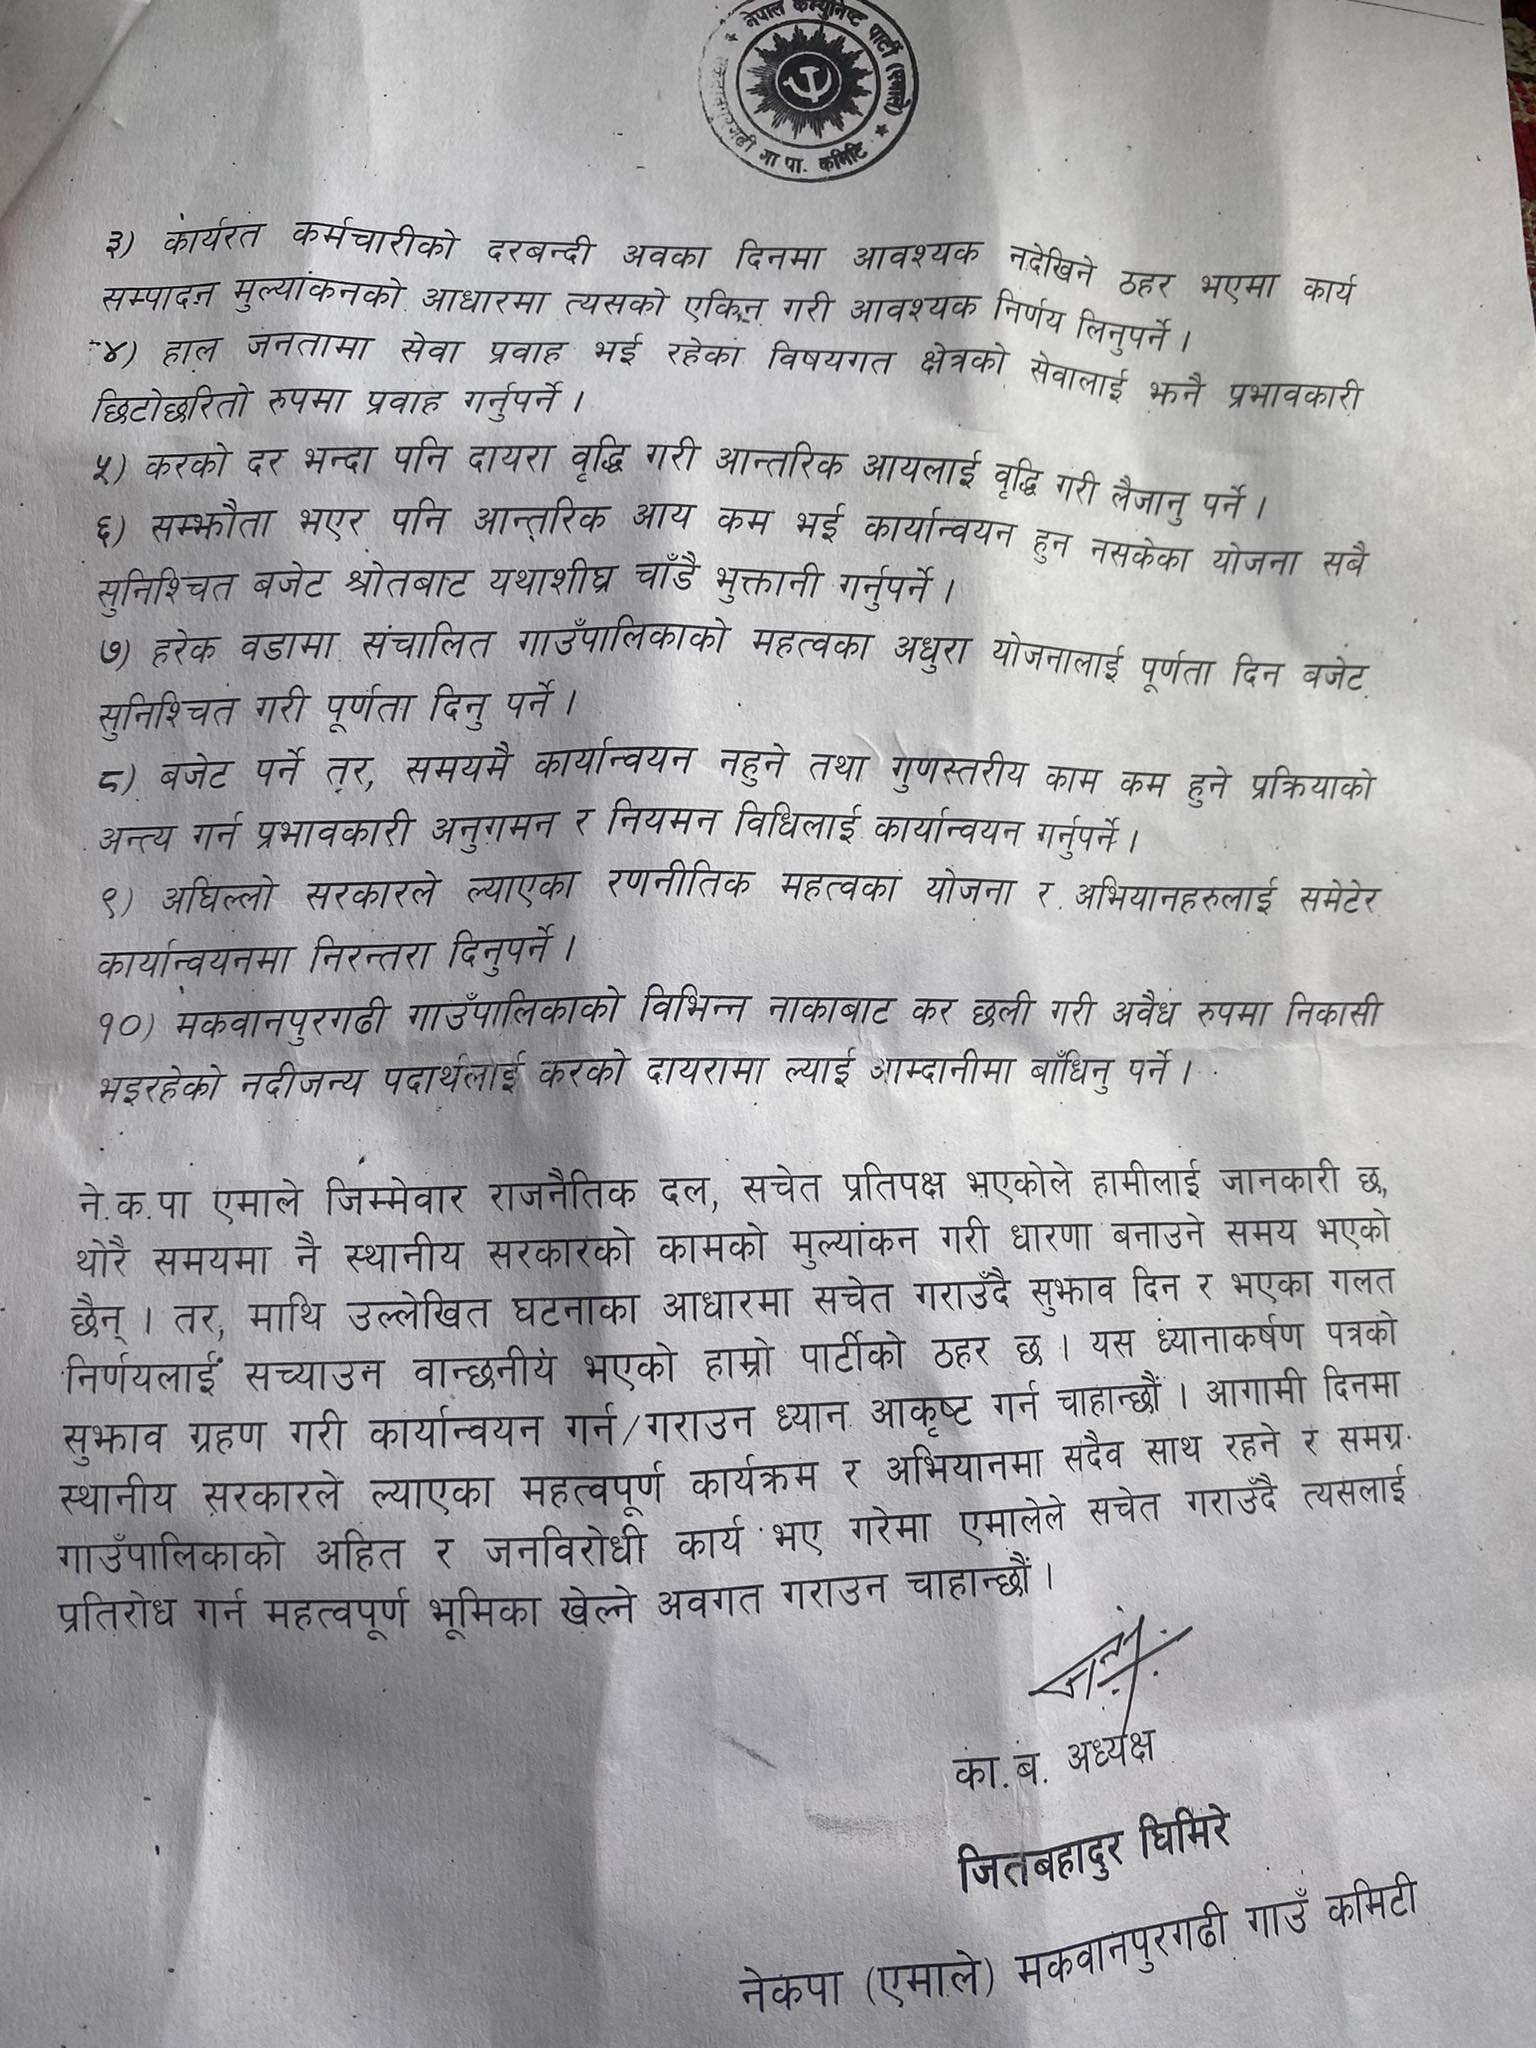 नेपाल कम्युनिष्ट पार्टी (एमाले)
गा.पा. कमिटि
३) कार्यरत कर्मचारीको दरबन्दी अवका दिनमा आवश्यक नदेखिने ठहर भएमा कार्य
सम्पादन मुल्यांकनको आधारमा त्यसको एकिन गरी आवश्यक निर्णय लिनुपर्ने ।
४) हाल जनतामा सेवा प्रवाह भई रहेका विषयगत क्षेत्रको सेवालाई झनै प्रभावकारी
छिटोछरितो रुपमा प्रवाह गर्नुपर्ने ।
५) करको दर भन्दा पनि दायरा वृद्धि गरी आन्तरिक आयलाई वृद्धि गरी लैजानु पर्ने ।
६) सम्झौता भएर पनि आन्तरिक आय कम भई कार्यान्वयन हुन नसकेका योजना सबै
सुनिश्चित बजेट श्रोतबाट यथाशीघ्र चाँडै भुक्तानी गर्नुपर्ने ।
७) हरेक वडामा संचालित गाउँपालिकाको महत्वका अधुरा योजनालाई पूर्णता दिन बजेट
सुनिश्चित गरी पूर्णता दिनु पर्ने ।
८) बजेट पर्ने तर, समयमै कार्यान्वयन नहुने तथा गुणस्तरीय काम कम हुने प्रक्रियाको
अन्त्य गर्न प्रभावकारी अनुगमन र नियमन विधिलाई कार्यान्वयन गर्नुपर्ने ।
९) अघिल्लो सरकारले ल्याएका रणनीतिक महत्वका योजना र अभियानहरुलाई समेटेर
कार्यान्वयनमा निरन्तरा दिनुपर्ने ।
१०) मकवानपुरगढी गाउँपालिकाको विभिन्न नाकाबाट कर छली गरी अवैध रुपमा निकासी
भइरहेको नदीजन्य पदार्थलाई करको दायरामा ल्याई आम्दानीमा बाँधिनु पर्ने ।
ने.क.पा एमाले जिम्मेवार राजनैतिक दल, सचेत प्रतिपक्ष भएकोले हामीलाई जानकारी छ,
थोरै समयमा नै स्थानीय सरकारको कामको मुल्यांकन गरी धारणा बनाउने समय भएको
छैन् । तर, माथि उल्लेखित घटनाका आधारमा सचेत गराउँदै सुझाव दिन र भएका गलत
निर्णयलाई सच्याउन वान्छनीय भएको हाम्रो पार्टीको ठहर छ । यस ध्यानाकर्षण पत्रको
सुझाव ग्रहण गरी कार्यान्वयन गर्न/गराउन ध्यान आकृष्ट गर्न चाहान्छौं । आगामी दिनमा
स्थानीय सरकारले ल्याएका महत्वपूर्ण कार्यक्रम र अभियानमा सदैव साथ रहने र समग्र
गाउँपालिकाको अहित र जनविरोधी कार्य भए गरेमा एमालेले सचेत गराउँदै त्यसलाई
प्रतिरोध गर्न महत्वपूर्ण भूमिका खेल्ने अवगत गराउन चाहान्छौं ।
का.ब. अध्यक्ष
जितबहादुर घिमिरे
नेकपा (एमाले) मकवानपुरगढी गाउँ कमिटी